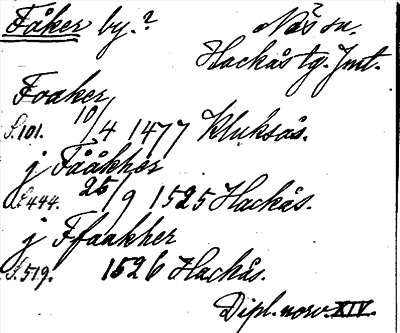 Fåker by.? Näs sn.
Hackås tg. Jmt.
Foaker
S. 101. 10/4 1477 Kluksås.
j Fååkher
S. 444. 25/9 1525 Hackås.
j Ffaakher
S. 519. 1526 Hackås.
Dipl. norv. XIV.